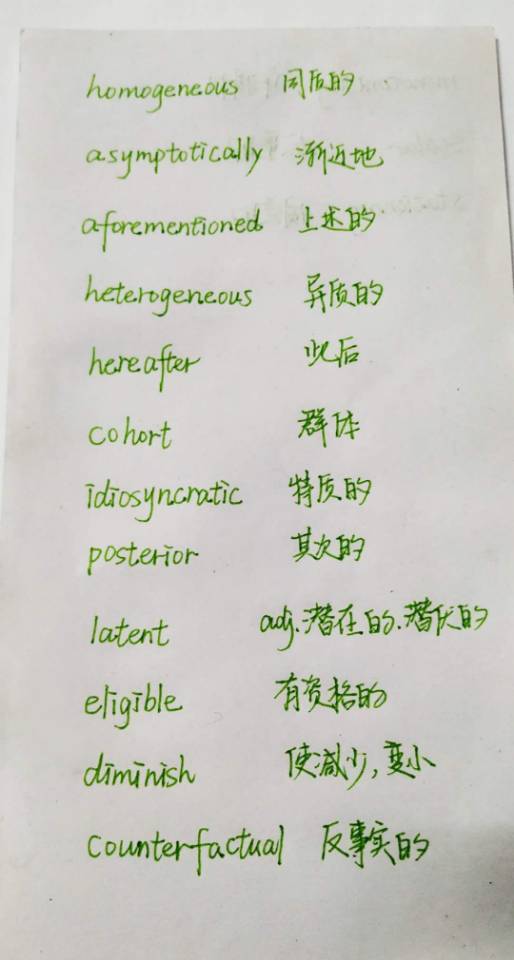 homogeneous 同质的
asymptotically 渐近地
aforementioned 上述的
heterogeneous 异质的
hereafter 此后
cohort 群体
idiosyncratic 特质的
posterior 其次的
latent adj.潜在的、潜伏的
eligible 有资格的
diminish 使减少,变小
counterfactual 反事实的